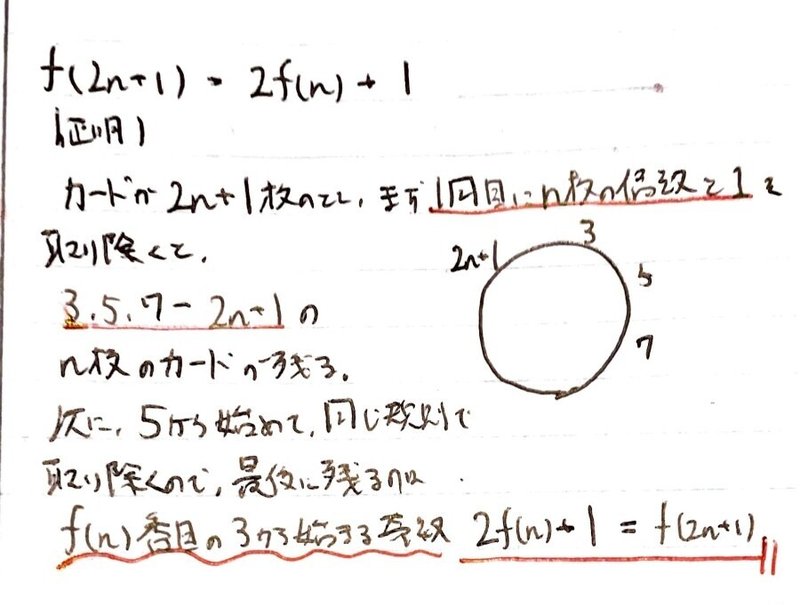 f(2n+1) = 2f(n) + 1
証明)
カードが 2n+1枚のとし、まず1回目にn枚の偶数と1を
取り除くと、
3.5.7 - 2n+1 の
n枚のカードが残る。
次に、5から始めて、同じ規則で
取り除くので、最後に残るのは
f(n)番目の3から始まる奇数 2f(n)+1 = f(2n+1)
2n+1
3
5
7